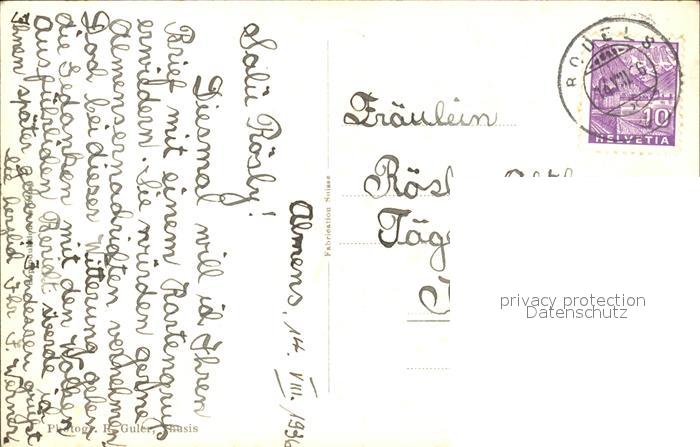 Almens, 14. VIII. 1936
Salü Rösly!
Diesmal will ich Ihren
Brief mit einem Kartengruss
erwidern. Sie würden gerne
Almensernachrichten vernehmen
Doch bei dieser Witterung gehen
die Gedanken mit den Wolken
Ausführlichen Bericht werde ich
Ihnen später geben. Indessen grüsst
Sie herzlich Ihr
Photogr. R. Guler, Thusis
Fabrication Suisse
Fräulein
Rös
Täge
HELVETIA
10
privacy protection
Datenschutz